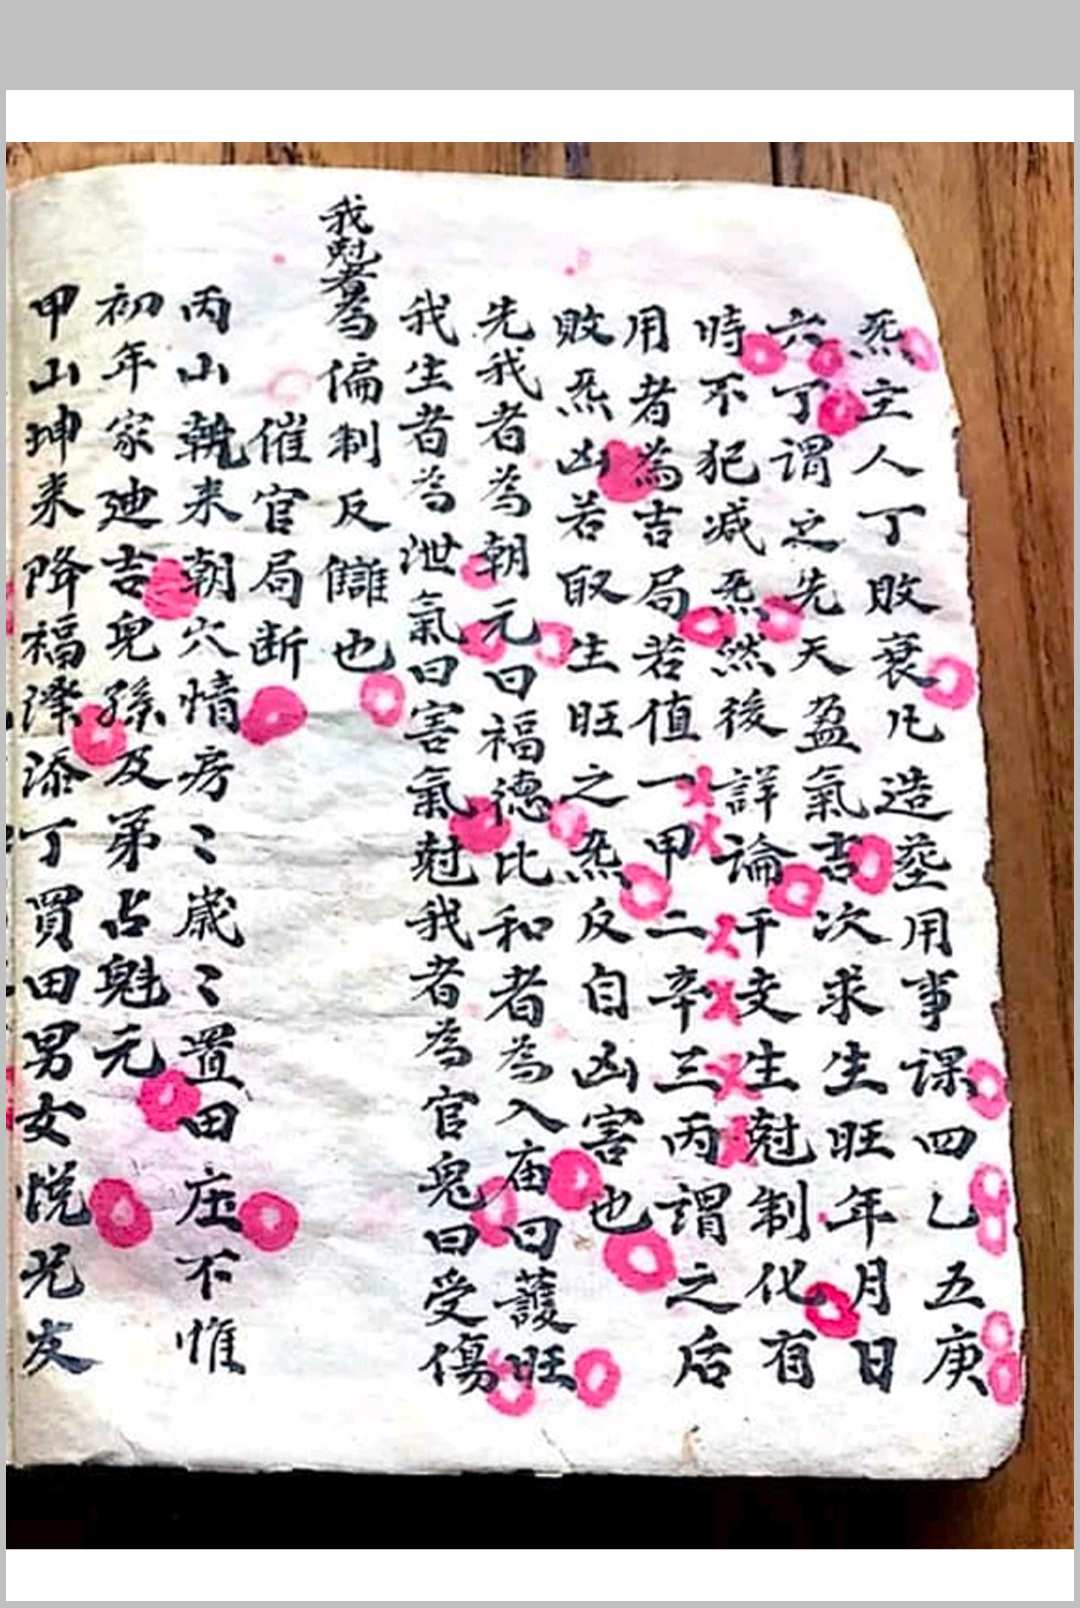 炁主人丁敗衰凡造塟用事課四乙五庚
六丁謂之先天盈氣吉次求生旺年月日
時不犯减炁然後詳論干支生尅制化有
用者為吉局若值一甲二辛三丙謂之后
敗炁凶若取生旺之炁反自凶害也
先我者為朝元曰福德比和者為入庙曰護旺
我生者為泄氣曰害氣尅我者為官鬼曰受傷
我尅者為偏制反讎也
催官局断
丙山執来朝穴情房〻歲〻置田庄不惟
初年家迪吉兒孫及第占魁元
甲山坤来降福澤添丁買田男女悦兄友